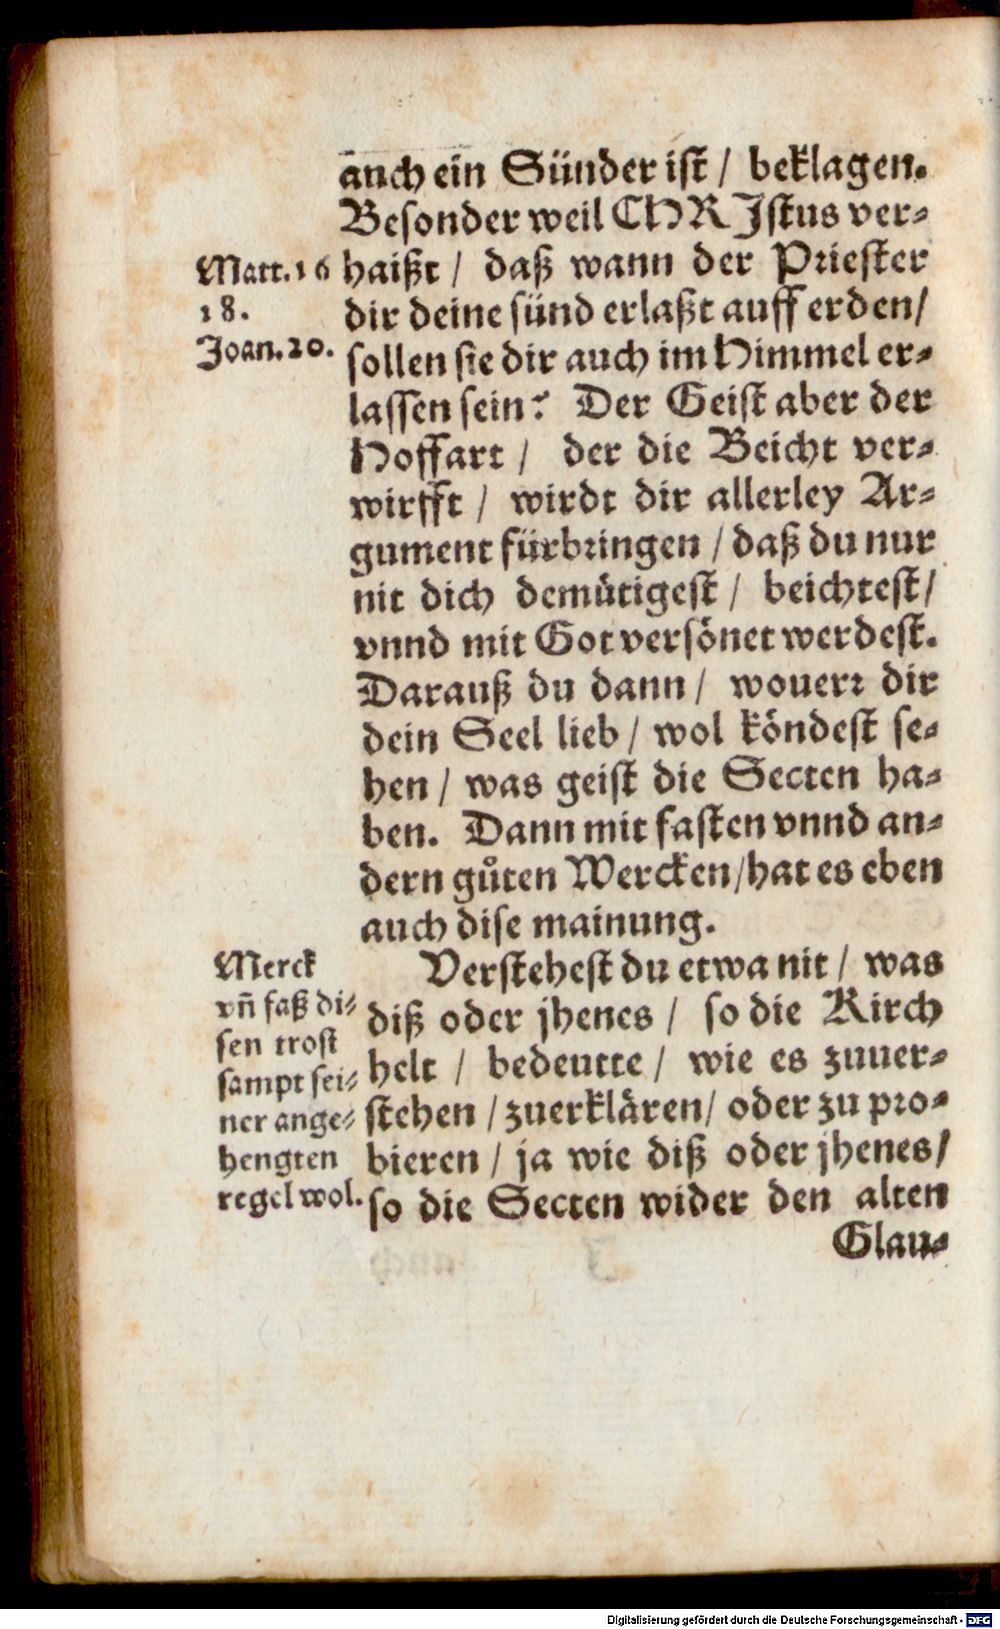 auch ein Sünder ist / beklagen.
Besonder weil CHRJstus ver⸗
haißt / daß wann der Priester
dir deine sünd erlaßt auff erden /
sollen sie dir auch im Himmel er⸗
lassen sein? Der Geist aber der
Hoffart / der die Beicht ver⸗
wirfft / wirdt dir allerley Ar⸗
gument fürbringen / daß du nur
nit dich demütigest / beichtest /
vnnd mit Got versönet werdest.
Darauß du dann / wouerr dir
dein Seel lieb / wol köndest se⸗
hen / was geist die Secten ha⸗
ben. Dann mit fasten vnnd an⸗
dern gůten Wercken / hat es eben
auch dise mainung.
Verstehest du etwa nit / was
diß oder jhenes / so die Kirch
helt / bedeutte / wie es zuuer⸗
stehen / zuerklären / oder zu pro⸗
bieren / ja wie diß oder jhenes /
so die Secten wider den alten
Glau⸗
Matt. 16
18.
Joan. 20.
Merck
vn̄ faß di⸗
sen trost
sampt sei⸗
ner ange⸗
hengten
regel wol.
Digitalisierung gefördert durch die Deutsche Forschungsgemeinschaft - DFG